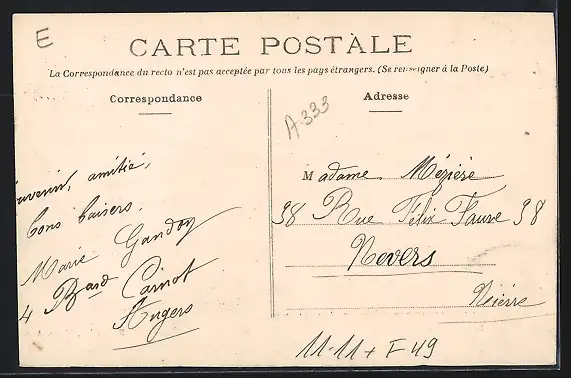 E
CARTE POSTALE
La Correspondance du recto n'est pas acceptée par tous les pays étrangers. (Se renseigner à la Poste)
Correspondance
uvenir, amitié,
bons baisers.
Marie Gandoy
4 Bard Carnot
Angers
Adresse
A-333
Madame Mézière
98 Rue Félix Faure 98
Nevers
Nièvre
11-11+ F 49